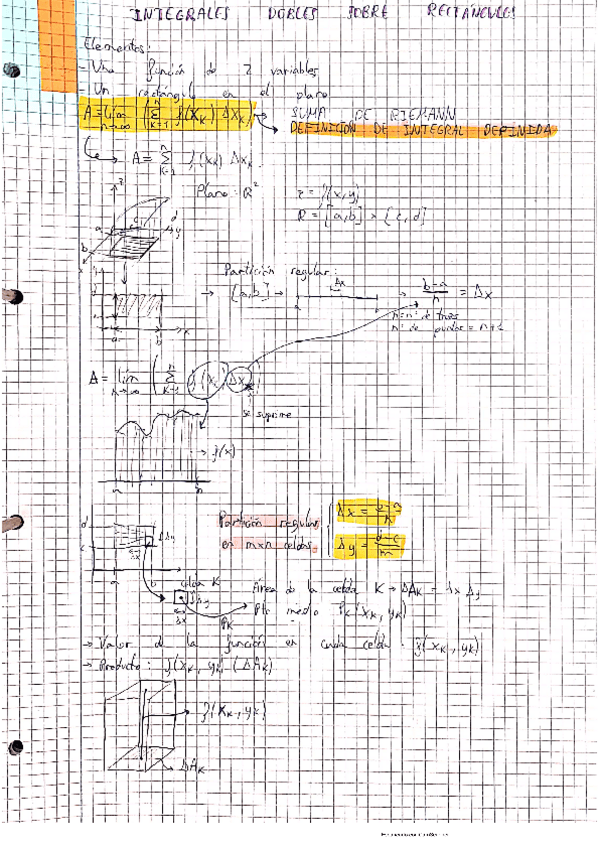 INTEGRALES DOBLES SOBRE RECTÁNGULOS
Elementos:
- Una función de 2 variables
- Un rectángulo en el plano
A = lím n→∞ (Σ k=1 n f(xk) Δxk) → SUMA DE RIEMANN
DEFINICIÓN DE INTEGRAL DEFINIDA
→ A = Σ k=1 n f(xk) Δxk
Plano: R² z = f(x,y)
R = [a,b] × [c,d]
Partición regular:
→ [a,b] → Δx → b-a/n = Δx
n = nº de
nº de puntos = n+1
A = lím n→∞ (Σ k=1 n f(xk) Δxk)
se suprime
f(x)
Partición regular Δx = b-a/n
en m×n celdas. Δy = d-c/m
celda K Área de la celda K → ΔAk = Δx Δy
Pto medio Pk(xk, yk)
Pk
→ Valor de la función en cada celda: f(xk, yk)
→ Producto: f(xk, yk) · (ΔAk)
→ f(xk, yk)
→ ΔAk